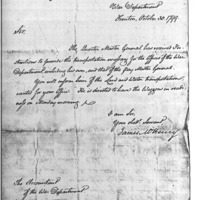 War Department
Trenton, October 30. 1799.
Sir,
The Quarter Master General has received In-
structions to provide the transportation necessary for the Offices of the War
Department, including his own, and that of the Pay Master General.
You will inform him of the Land and Water transportation,
wanted for your Office. He is directed to have the Waggons in rea-
diness on Monday morning.
I am Sir
Your Obt Servant
James McHenry
The Accountant
of the War Department